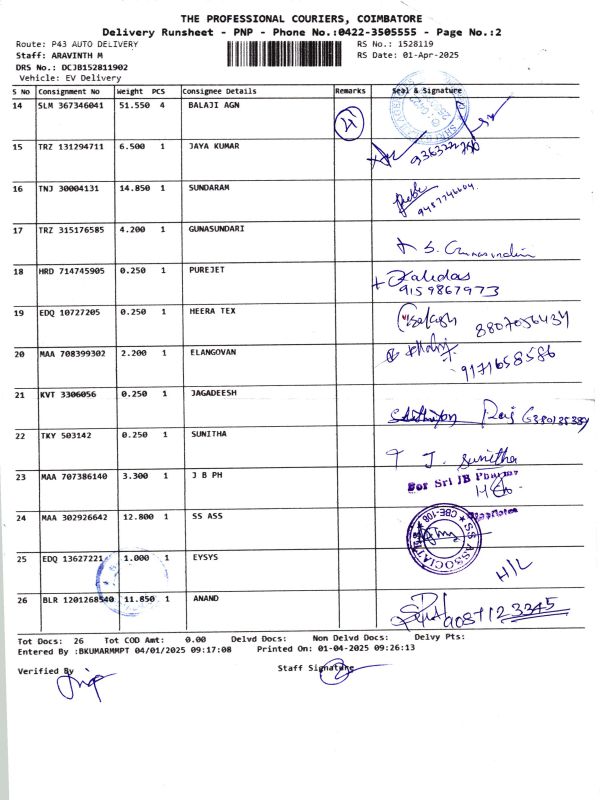 THE PROFESSIONAL COURIERS, COIMBATORE
Delivery Runsheet - PNP - Phone No.:0422-3505555 - Page No.:2
Route: P43 AUTO DELIVERY RS No.: 1528119
Staff: ARAVINTH M RS Date: 01-Apr-2025
DRS No.: DCJB152811902
Vehicle: EV Delivery
S No Consignment No Weight PCS Consignee Details Remarks Seal & Signature
14 SLM 367346041 51.550 4 BALAJI AGN
15 TRZ 131294711 6.500 1 JAYA KUMAR
16 TNJ 30004131 14.850 1 SUNDARAM
9487746604
17 TRZ 315176585 4.200 1 GUNASUNDARI
S. Gunasundari
18 HRD 714745905 0.250 1 PUREJET
Kalidas
9159867973
19 EDQ 10727205 0.250 1 HEERA TEX
8807056434
20 MAA 708399302 2.200 1 ELANGOVAN
9171658586
21 KVT 3306056 0.250 1 JAGADEESH
Raj 6380135389
22 TKY 503142 0.250 1 SUNITHA
J. Sunitha
23 MAA 707386140 3.300 1 J B PH
For Sri JB Pharma
24 MAA 302926642 12.800 1 SS ASS
SS ASSOCIATES CBE-108
25 EDQ 13627221 1.000 1 EYSYS
H/L
26 BLR 1201268540 11.850 1 ANAND
Tot Docs: 26 Tot COD Amt: 0.00 Delvd Docs: Non Delvd Docs: Delvy Pts:
Entered By :BKUMARMMPT 04/01/2025 09:17:08 Printed On: 01-04-2025 09:26:13
Verified By Staff Signature